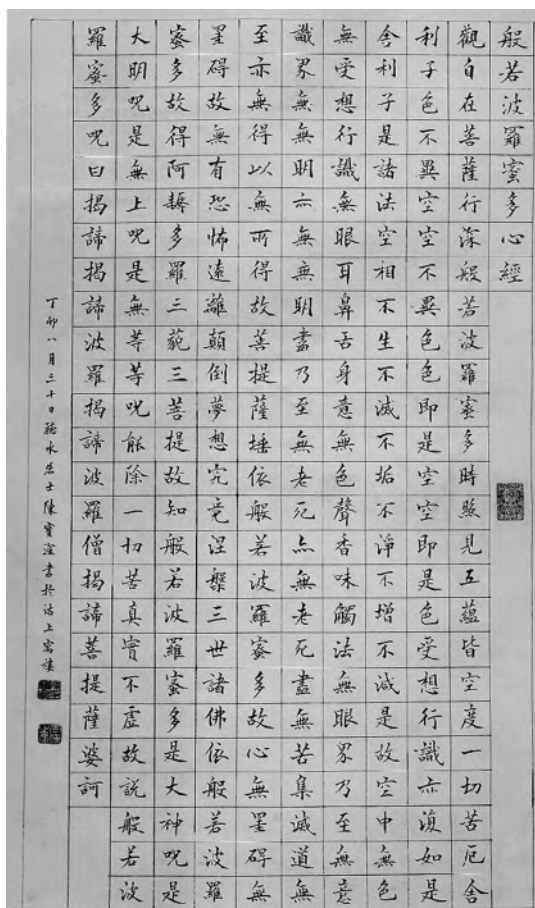 般若波羅蜜多心經
觀自在菩薩行深般若波羅蜜多時照見五蘊皆空度一切苦厄舍
利子色不異空空不異色色即是空空即是色受想行識亦復如是
舍利子是諸法空相不生不滅不垢不淨不增不減是故空中無色
無受想行識無眼耳鼻舌身意無色聲香味觸法無眼界乃至無意
識界無無明亦無無明盡乃至無老死亦無老死盡無苦集滅道無
至亦無得以無所得故菩提薩埵依般若波羅蜜多故心無罣碍無
罣碍故無有恐怖遠離顛倒夢想究竟涅槃三世諸佛依般若波羅
蜜多故得阿耨多羅三藐三菩提故知般若波羅蜜多是大神咒是
大明咒是無上咒是無等等咒能除一切苦真實不虛故說般若波
羅蜜多咒曰揭諦揭諦波羅揭諦波羅僧揭諦菩提薩婆訶
丁卯八月三十日聽水居士陳寶琛書於沽上寓樓